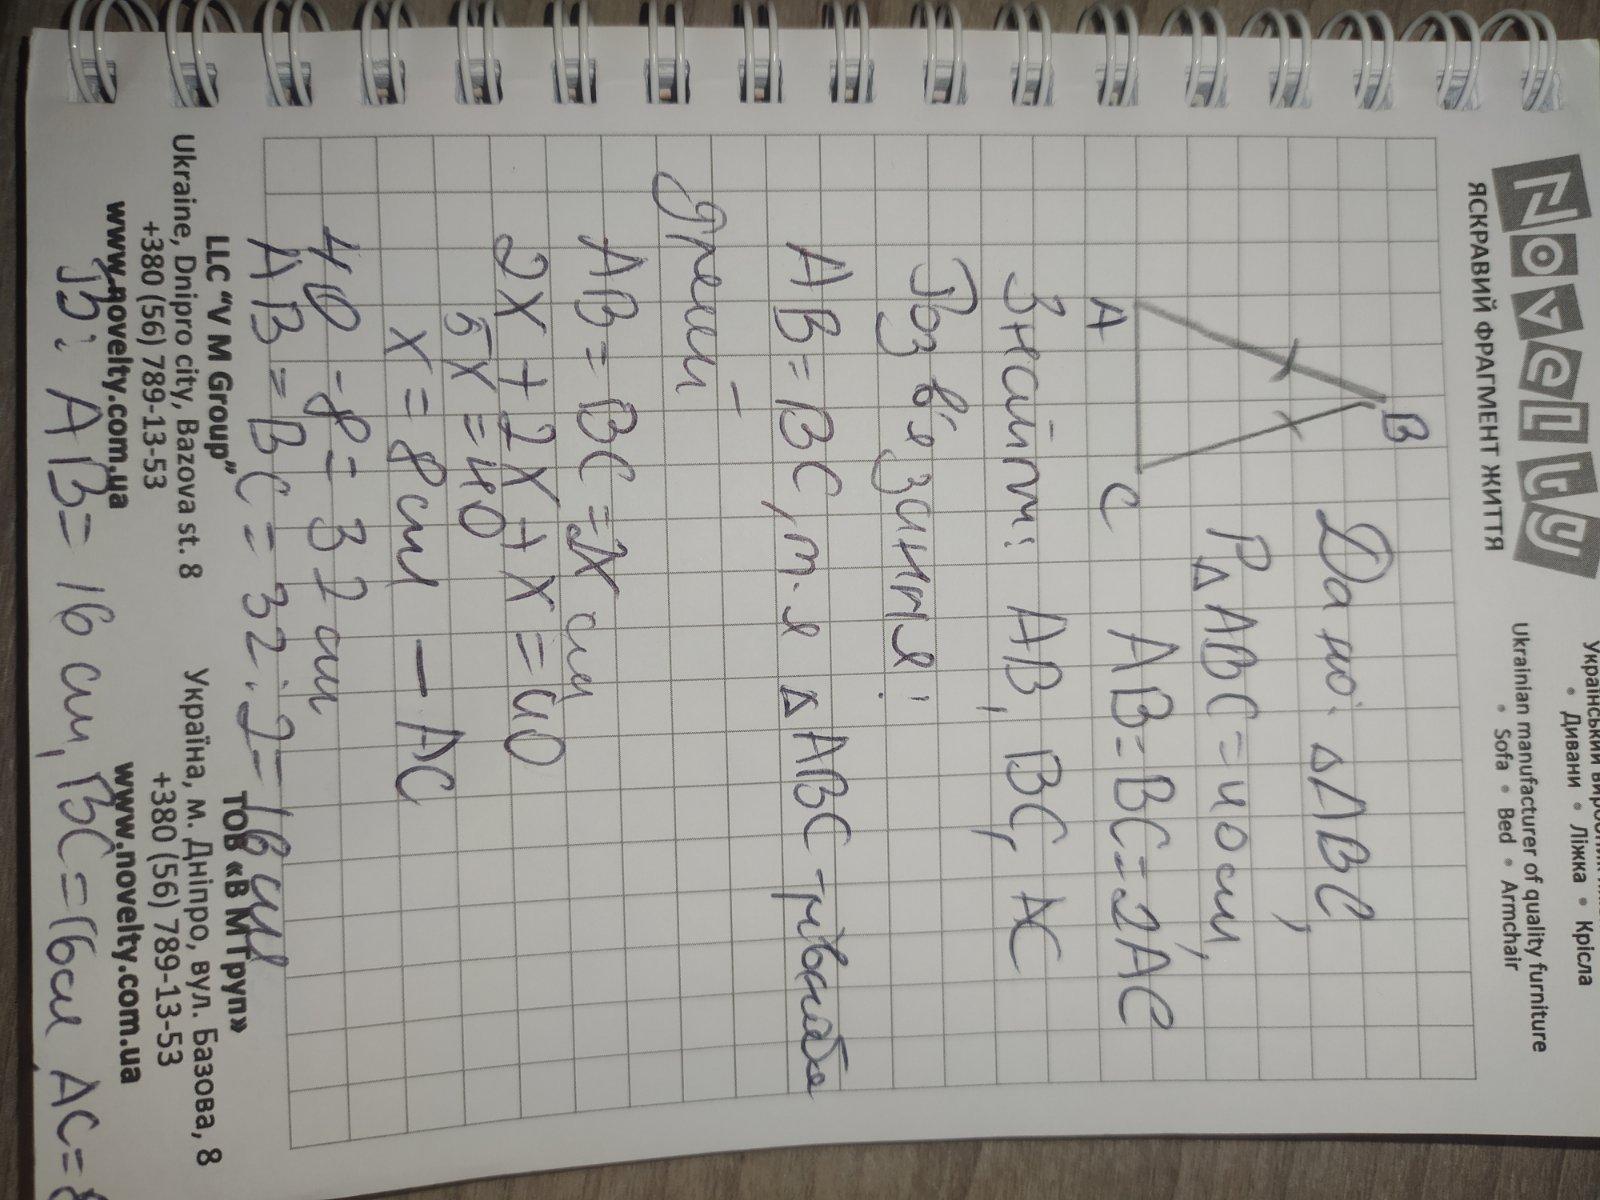 Novelty
ЯСКРАВИЙ ФРАГМЕНТ ЖИТТЯ
• Дивани • Ліжка • Крісла
Ukrainian manufacturer of quality furniture
• Sofa • Bed • Armchair
B
A
C
Дано: △ABC,
P△ABC=40см,
AB=BC=2AC
Знайти: AB, BC, AC
Розв'язання:
AB=BC, т.я △ABC-
AB=BC=2X см
2X+2X+X=40
5X=40
X=8см - AC
40-8=32см
AB=BC=32:2=16см
LLC "V M Group"
Ukraine, Dnipro city, Bazova st. 8
+380 (56) 789-13-53
www.novelty.com.ua
ТОВ «В М Груп»
Україна, м. Дніпро, вул. Базова, 8
+380 (56) 789-13-53
www.novelty.com.ua
Вз: AB=16 см, BC=16см, AC=8